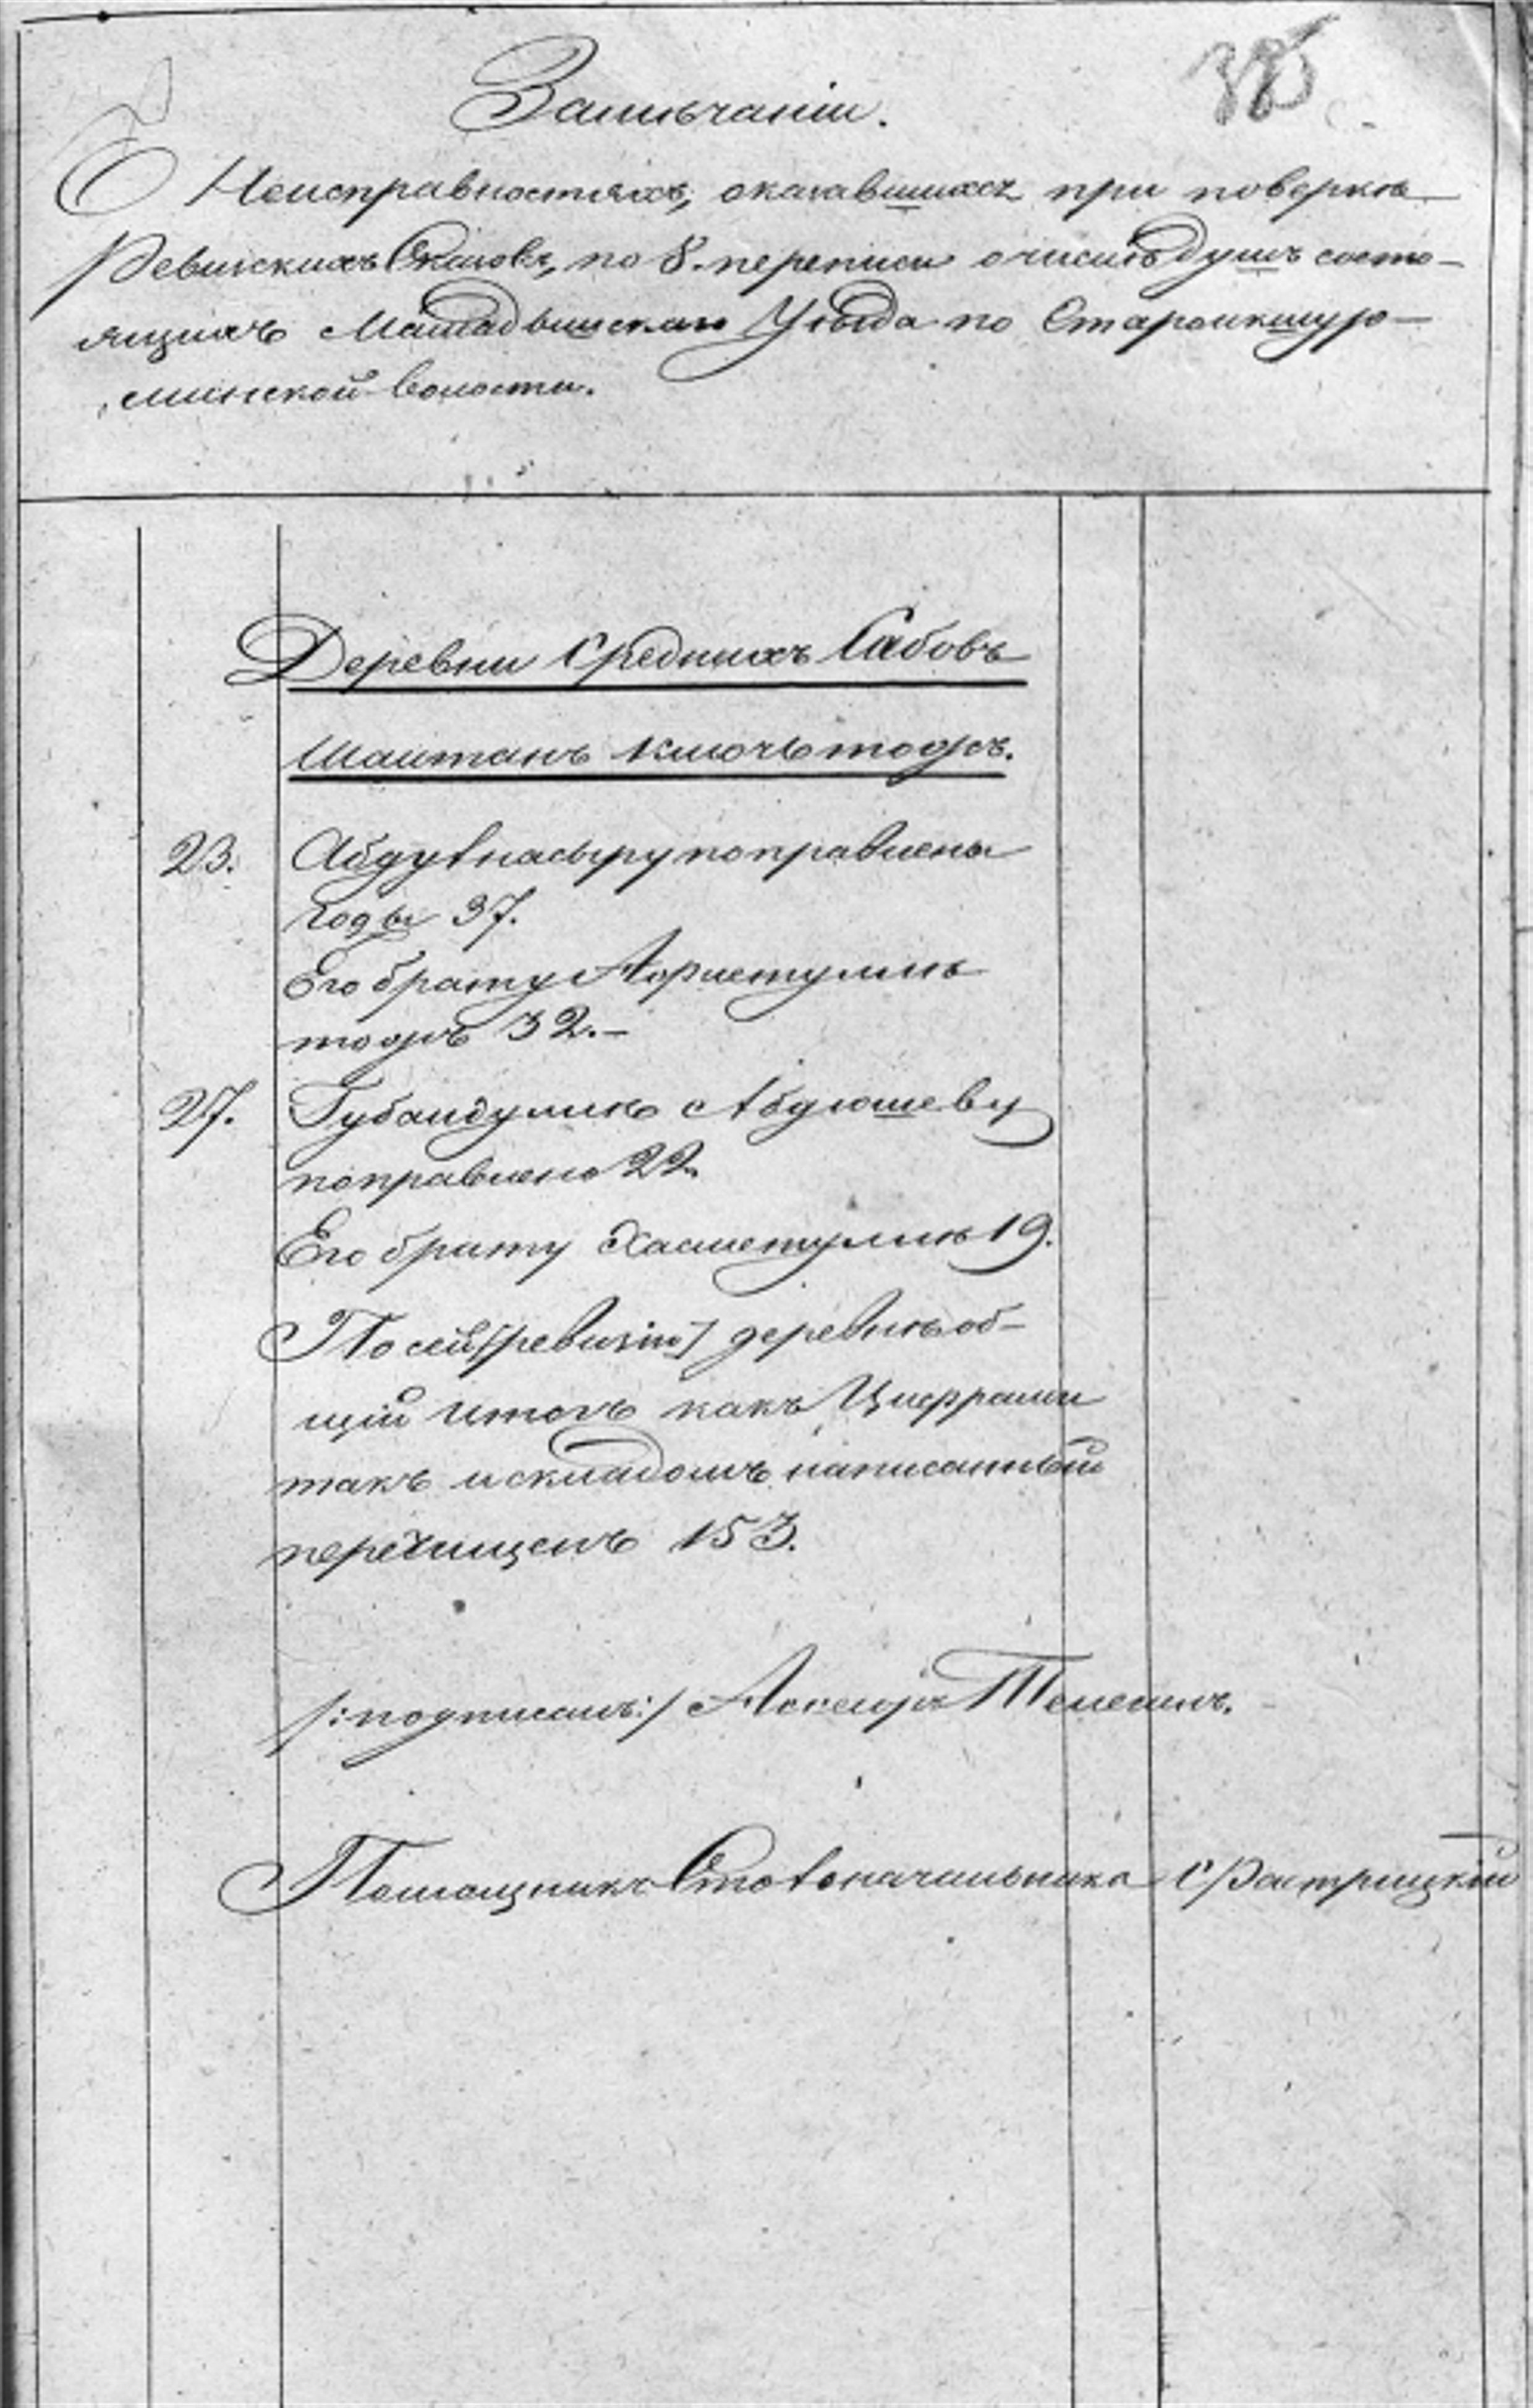 Замѣчаніи.
О Неисправностяхъ, оказавшихся при повѣркѣ
Ревизскихъ Сказокъ, по 8. переписи о числѣ душъ состо-
ящихъ Мамадышскаго Уѣзда по Староикшур-
минской волости.
Деревни Среднихъ Сабовъ
Шайтанъ ключь тожъ.
23. Абдулнасыру поправлены
годы 37.
Его брату
тожъ 32.-
27. Губайдуллѣ Абдюшеву
поправлено 22.
Его брату Хасметуллѣ 19.
По сей /ревизіи/ деревнѣ об-
щій итогъ какъ Цыфрами
такъ и складомъ написанный
перечищенъ 153.
/:подписалъ:/ Асесоръ
Помощникъ Столоначальника